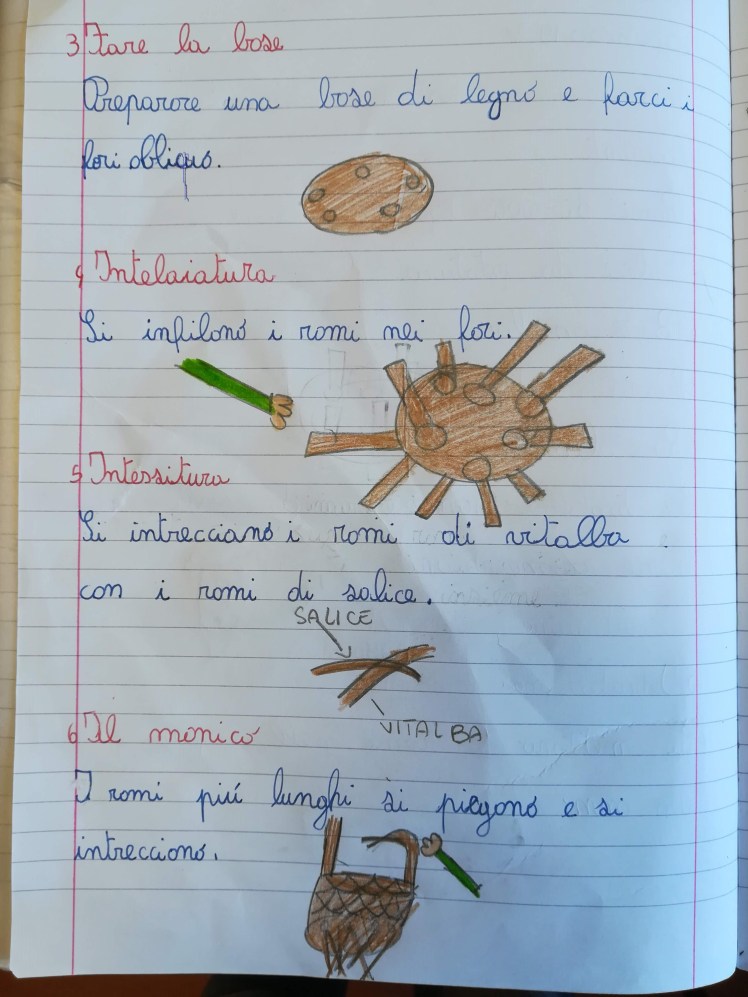 3 Fare la base
Preparare una base di legno e farci i
fori obliquo.
4 Intelaiatura
Si infilano i rami nei fori.
5 Intessitura
Si intrecciano i rami di vitalba
con i rami di salice.
SALICE
VITALBA
6 Il manico
I rami piú lunghi si piegono e si
intrecciono.